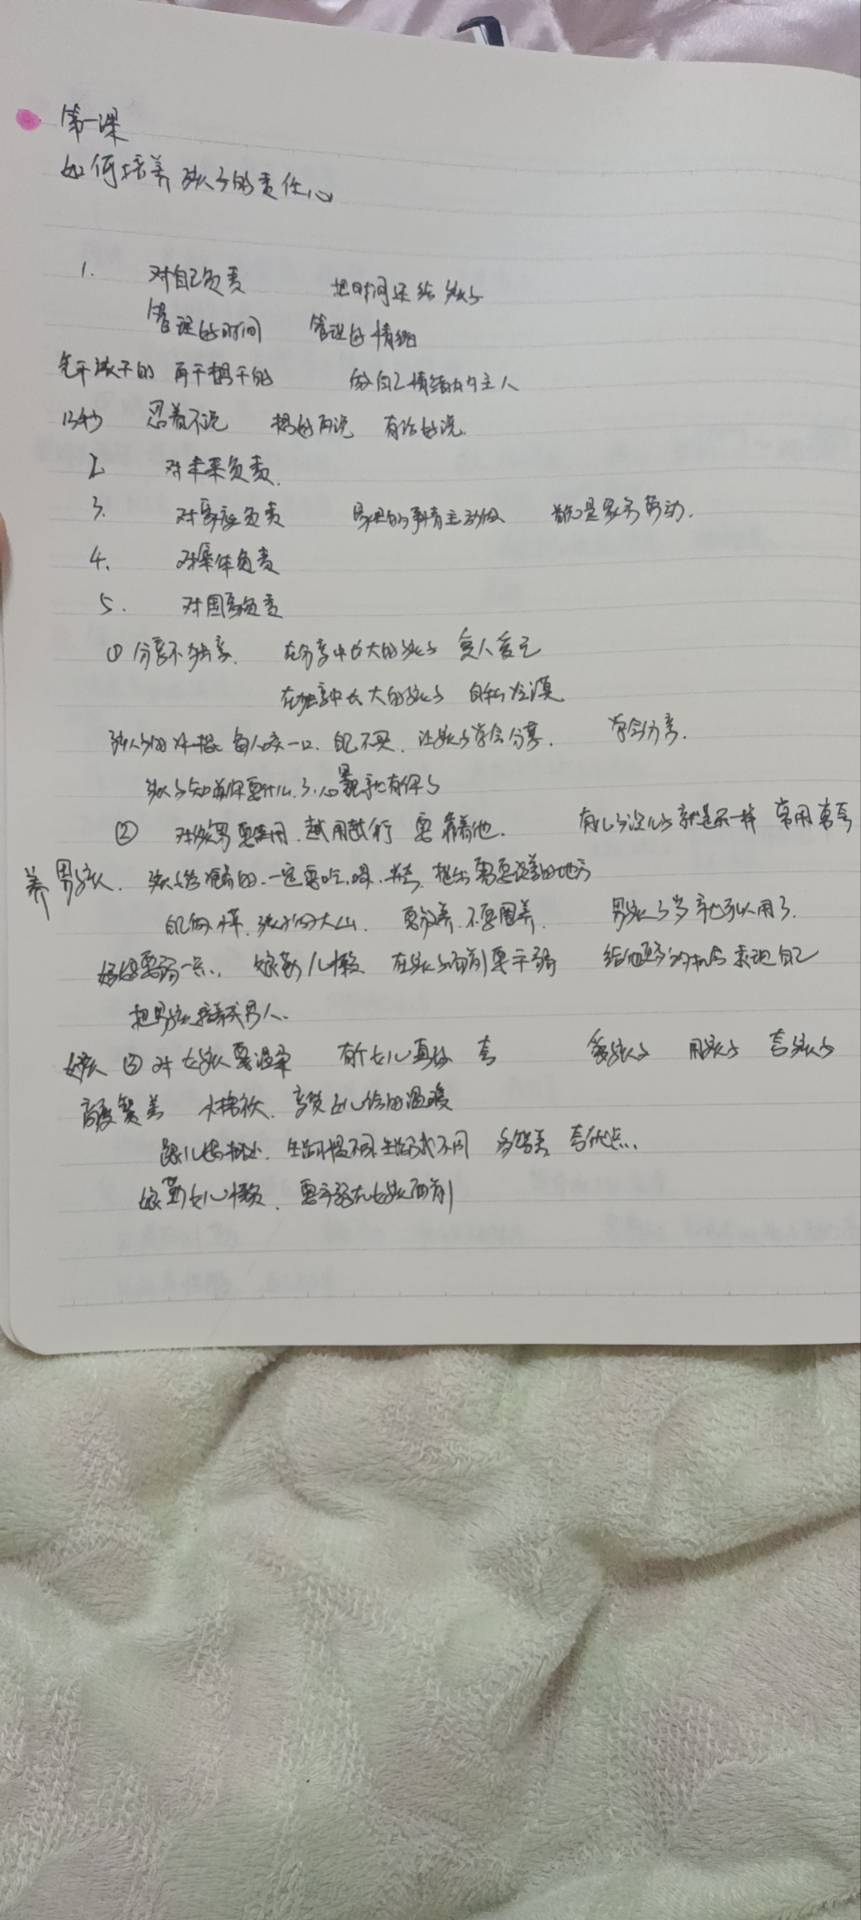 第一课
如何培养孩子的责任心
1. 对自己负责 把时间还给孩子
管理好时间 管理好情绪
先干该干的 再干想干的 做自己情绪的主人
忍着不说 想好再说 有话好说.
2 对未来负责.
3. 对家庭负责 家里的事情主动做 都是家务劳动.
4. 对集体负责
5. 对国家负责
① 分享不独享. 在分享中长大的孩子 爱人爱己
在独享中长大的孩子 自私冷漠
每人咬一口. 自己不买. 让孩子学会分享. 学会分享.
孩子知道你要什么了. 心里就有你了
② 对男要用 越用越行 要靠着他. 有儿子没儿子就是不一样 常用常夸
养男孩. 孩子给准备的. 一定要吃. 喝. 提出需要改善的地方
自己做 孩子的大山. 要放养. 不要圈养. 男孩子 就可以用了.
妈妈要弱一点. 娘勤儿懒 在孩子面前要示弱 给他更多的机会表现自己
把男孩培养成男人.
女孩 ③ 对女孩要温柔 有个女儿真好 夸 爱孩子 用孩子 夸孩子
高度赞美 小棉袄. 享受女儿给的温暖
跟儿媳相处. 生活习惯不同 生活方式不同 多赞美 夸优点.
娘勤女儿懒. 要示弱在女孩面前